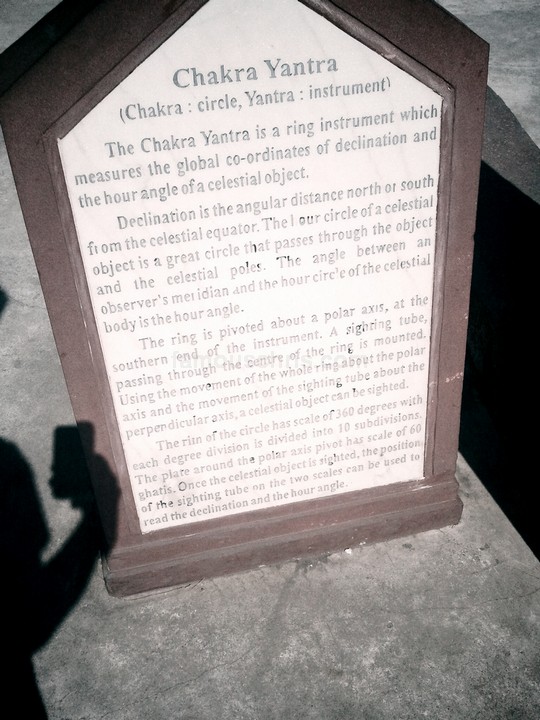 Chakra Yantra
(Chakra : circle, Yantra : instrument)
The Chakra Yantra is a ring instrument which
measures the global co-ordinates of declination and
the hour angle of a celestial object.
Declination is the angular distance north or south
from the celestial equator. The hour circle of a celestial
object is a great circle that passes through the object
and the celestial poles. The angle between an
observer's meridian and the hour circle of the celestial
body is the hour angle.
The ring is pivoted about a polar axis, at the
southern end of the instrument. A sighting tube,
passing through the centre of the ring is mounted.
Using the movement of the whole ring about the polar
axis and the movement of the sighting tube about the
perpendicular axis, a celestial object can be sighted.
The rim of the circle has scale of 360 degrees with
each degree division is divided into 10 subdivisions.
The plate around the polar axis pivot has scale of 60
ghatis. Once the celestial object is sighted, the position
of the sighting tube on the two scales can be used to
read the declination and the hour angle.